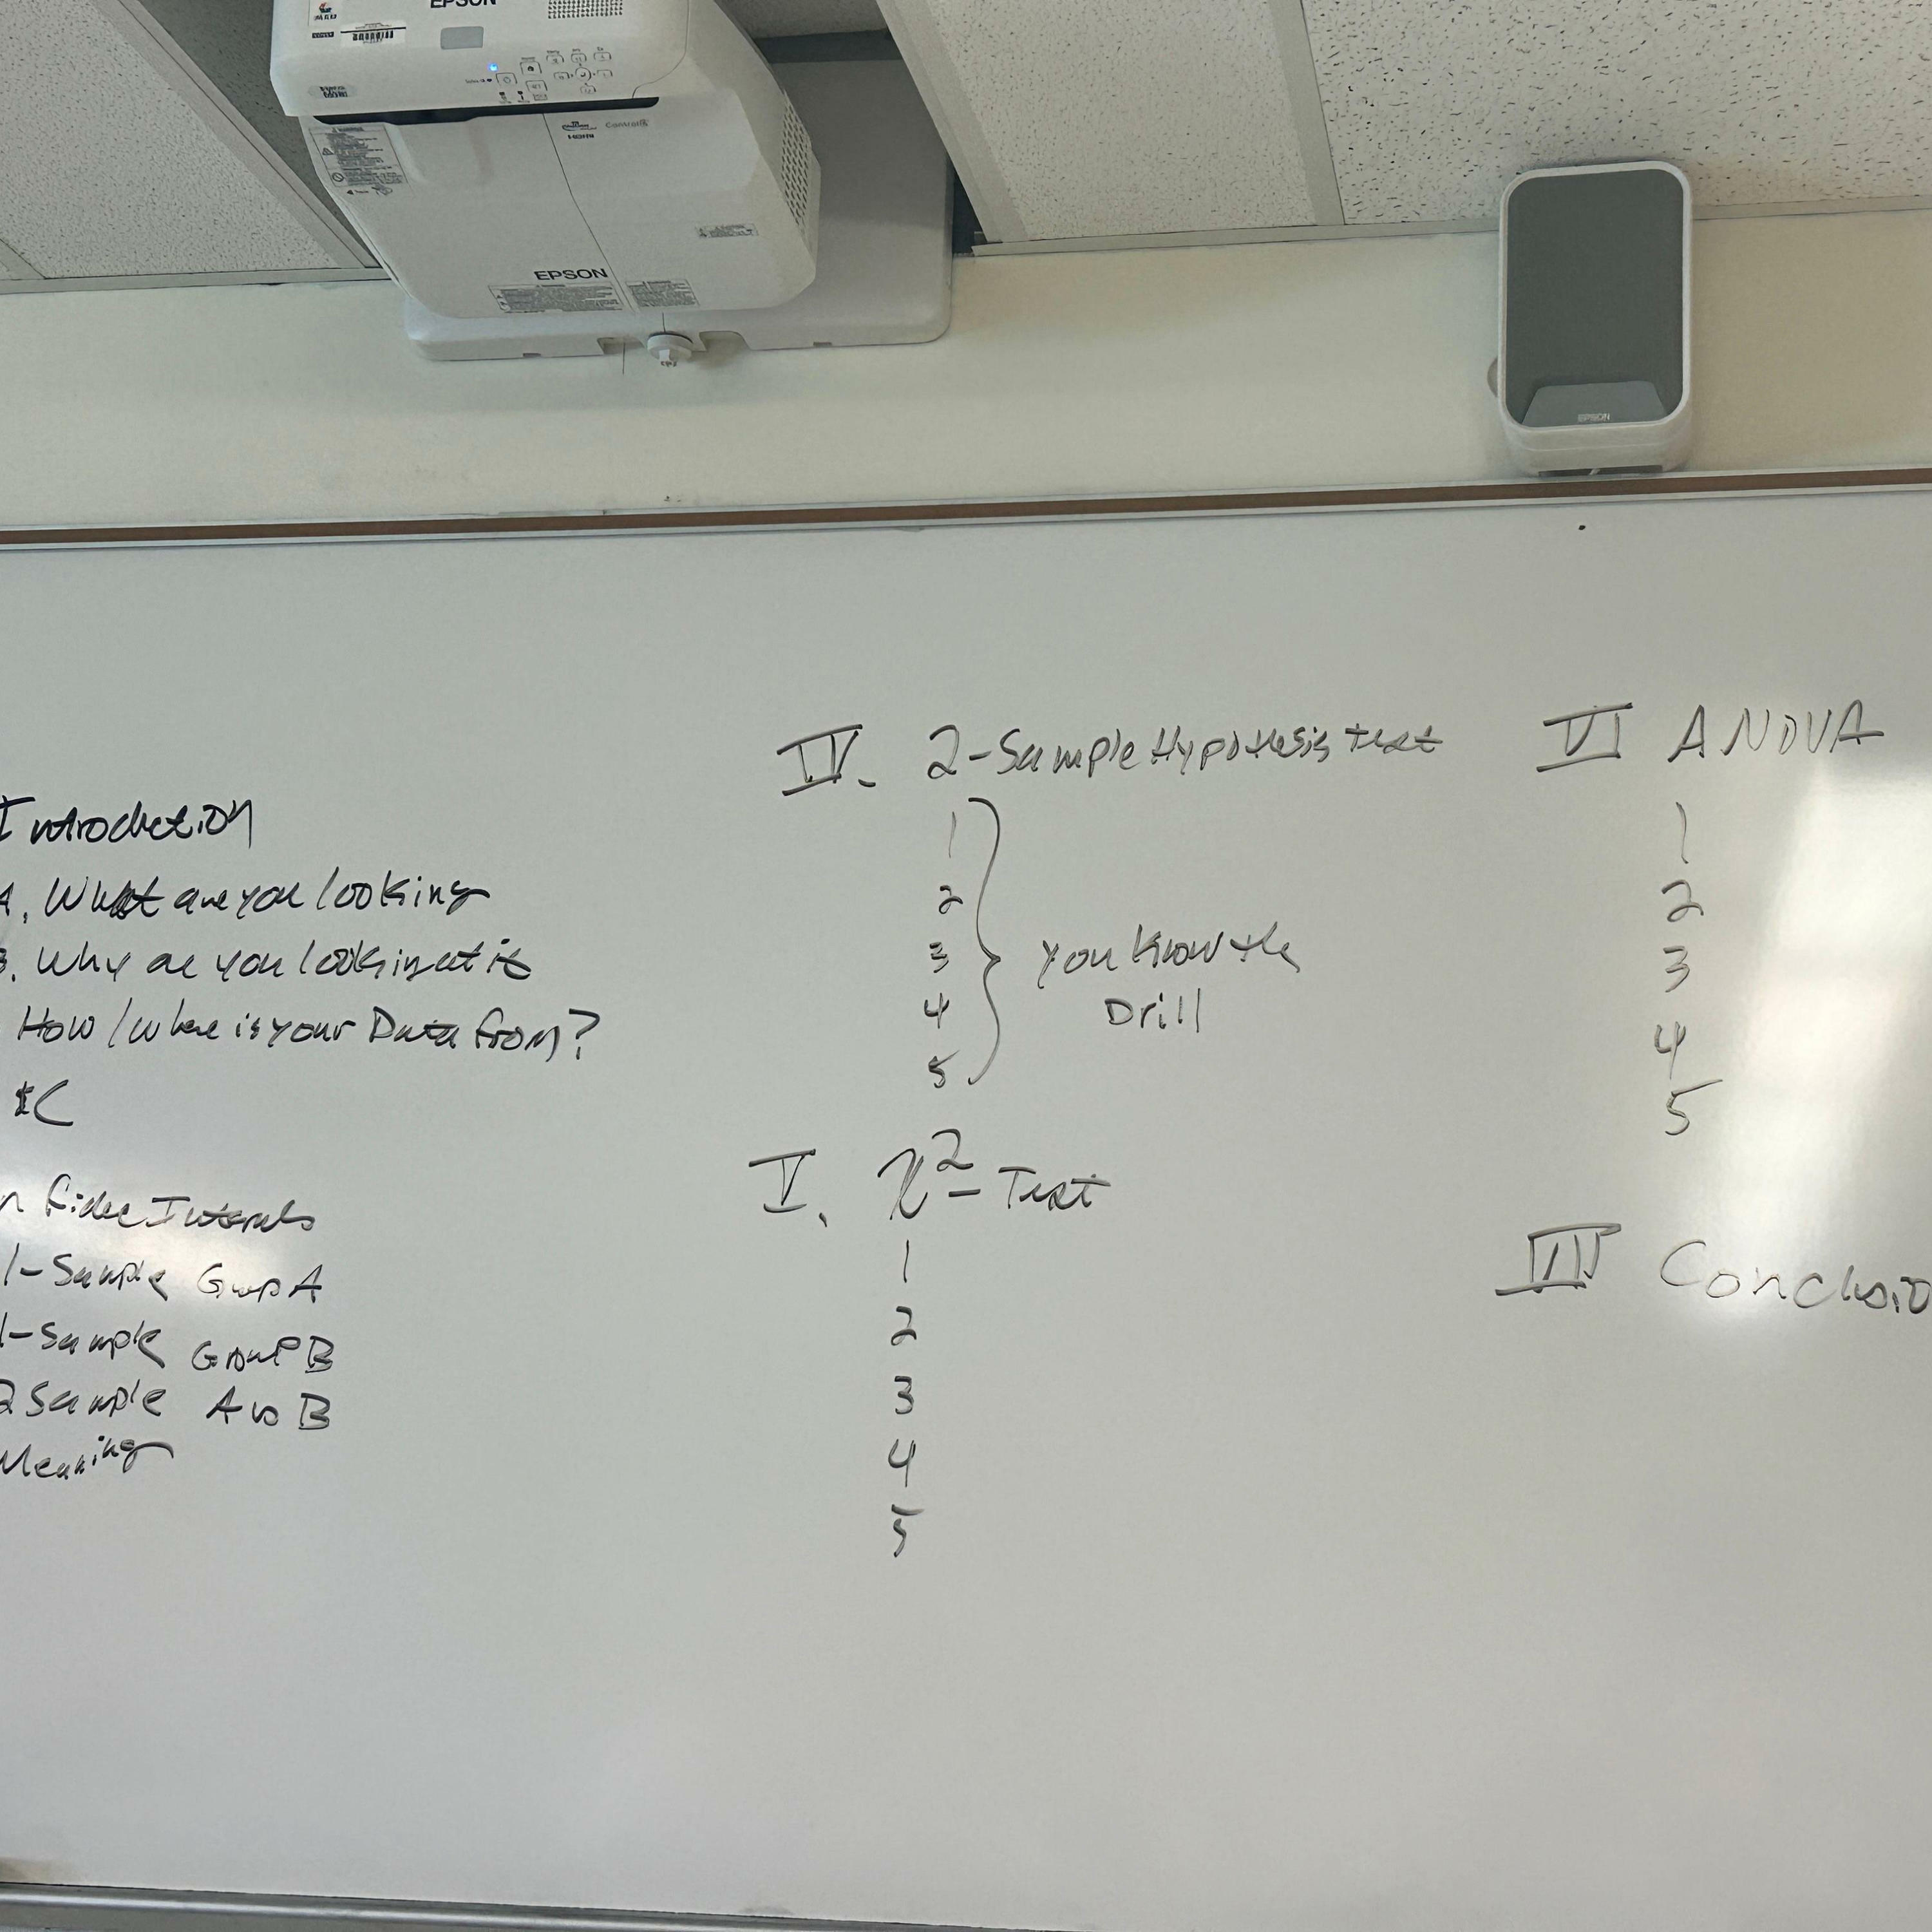 EPSON
Control4
HDMI
EPSON
EPSON
Introduction
A. What are you looking
B. Why are you looking at it
How/where is your Data from?
*C
n fidec Intervals
1-Sample Group A
1-Sample Group B
2 Sample A vs B
Meaning
IV. 2-Sample Hypothesis test
1
2
3
4
5
you know the
Drill
V. χ²-Test
1
2
3
4
5
VI ANOVA
1
2
3
4
5
VII Conclusio